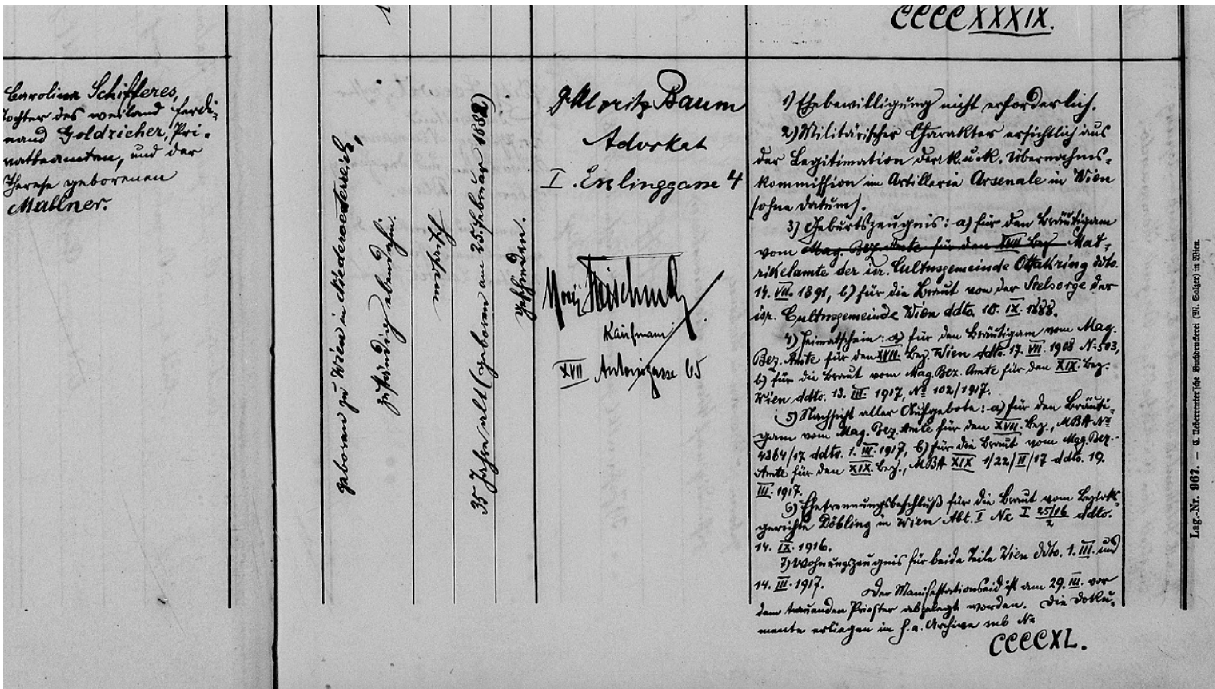 CCCCXXXIX.
Carolina Schifferes,
Tochter des weiland Ferdi-
nand Goldricher, Pri-
vatbeamten, und der
Therese geborenen
Mallner.
geboren zu Wien in Niederoesterreich,
zuständig ebendahin.
mosaisch
35 Jahre alt (geboren am 25. Februar 1882)
geschieden.
Dr Moritz Baum
Advokat
I. Esslinggasse 4
Moriz
Kaufmann
XVII Antonigasse 65
1) Ehebewilligung nicht erforderlich.
2) Militärischer Charakter ersichtlich aus
der Legitimation der k.u.k. Übernahms-
kommission im Artillerie Arsenale in Wien
(ohne Datum).
3) Geburtszeugnis: a) für den Bräutigam
vom Mag. Bez. Amte für den XVII Bez. Mat-
rikelamte der isr. Cultusgemeinde Ottakring ddto.
14. VII. 1891, b) für die Braut von der Seelsorge der
isr. Cultusgemeinde Wien ddto. 10. IX. 1888.
4) Heimatschein: a) für den Bräutigam vom Mag.
Bez. Amte für den XVII. Bez. Wien ddto. 17. VII. 1908 N. 503,
b) für die Braut vom Mag. Bez. Amte für den XIX. Bez.
Wien ddto. 13. III. 1917, No 102/1917.
5) Nachsicht aller Aufgebote: a) für den Bräuti-
gam vom Mag. Bez. Amte für den XVII. Bez., MBA No
4364/17 ddto. 1. III. 1917, b) für die Braut vom Mag. Bez.-
Amte für den XIX. Bez., MBA XIX 1/22/II/17 ddto. 19.
III. 1917.
6) Ehetrennungsbeschluß für die Braut vom Bezirks-
gerichte Döbling in Wien Abt. I Nc I 25/16/2 ddto.
14. IX. 1916.
7) Wohnungszeugnis für beide Teile Wien ddto. 1. III. und
14. III. 1917. Der Manifestationseid ist am 29. III. vor
dem trauenden Priester abgelegt worden. Die Doku-
mente erliegen im h.a. Archive sub No
CCCCXL.
Lag.-Nr. 967. — C. Ueberreuter'sche Buchdruckerei (M. Salzer) in Wien.